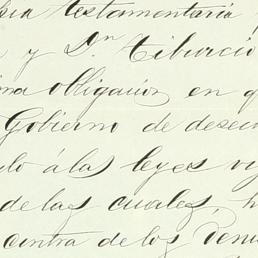 testamentaria
y Dn Tiburcio
obligacion en q
Gobierno de desec
lo á las leyes vi
de las cuales, h
contra de los